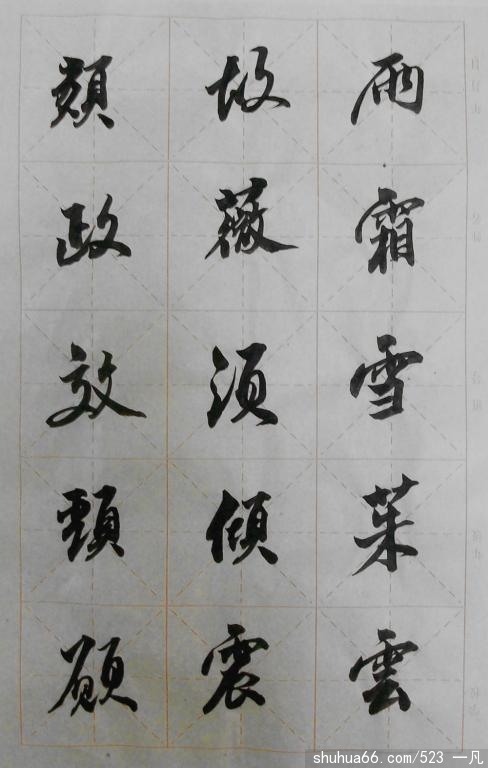 雨霜雪茱雲
故薇須傾震
頦政效頸願
shuhua66.com/523 一凡